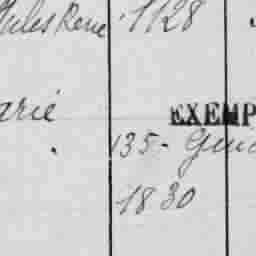 Jules René 1128
arié EXEMP
135-
1830